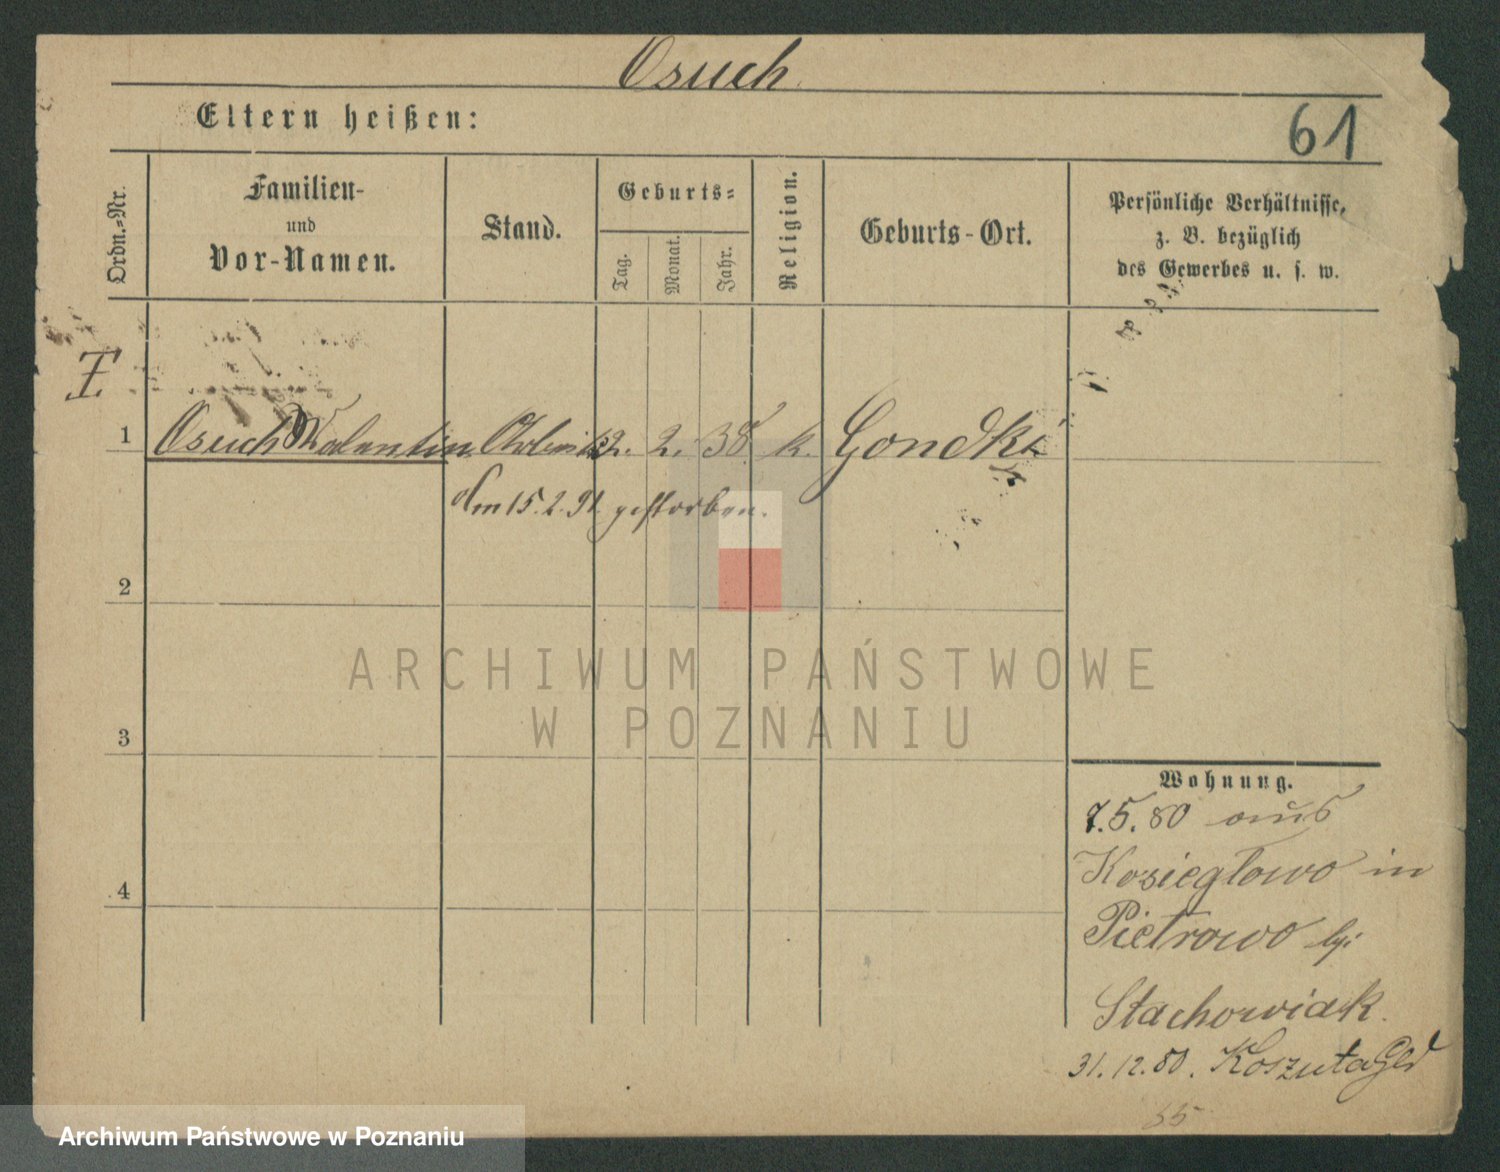 Osuch
Eltern heißen:
61
Ordn.-Nr.
Familien-
und
Vor-Namen.
Stand.
Geburts-
Tag.
Monat.
Jahr.
Religion.
Geburts-Ort.
Persönliche Verhältnisse,
z. B. bezüglich
des Gewerbes u. s. w.
1 Osuch Valentin 2. 2. 38 k. Gondki
am 15.2.91. gestorben.
2
3
4
ARCHIWUM PAŃSTWOWE
W POZNANIU
Wohnung.
7.5.80 aus
Kosieglowo in
Pietrowo bei
Stachowiak.
31.12.80. Koszuta
Archiwum Państwowe w Poznaniu